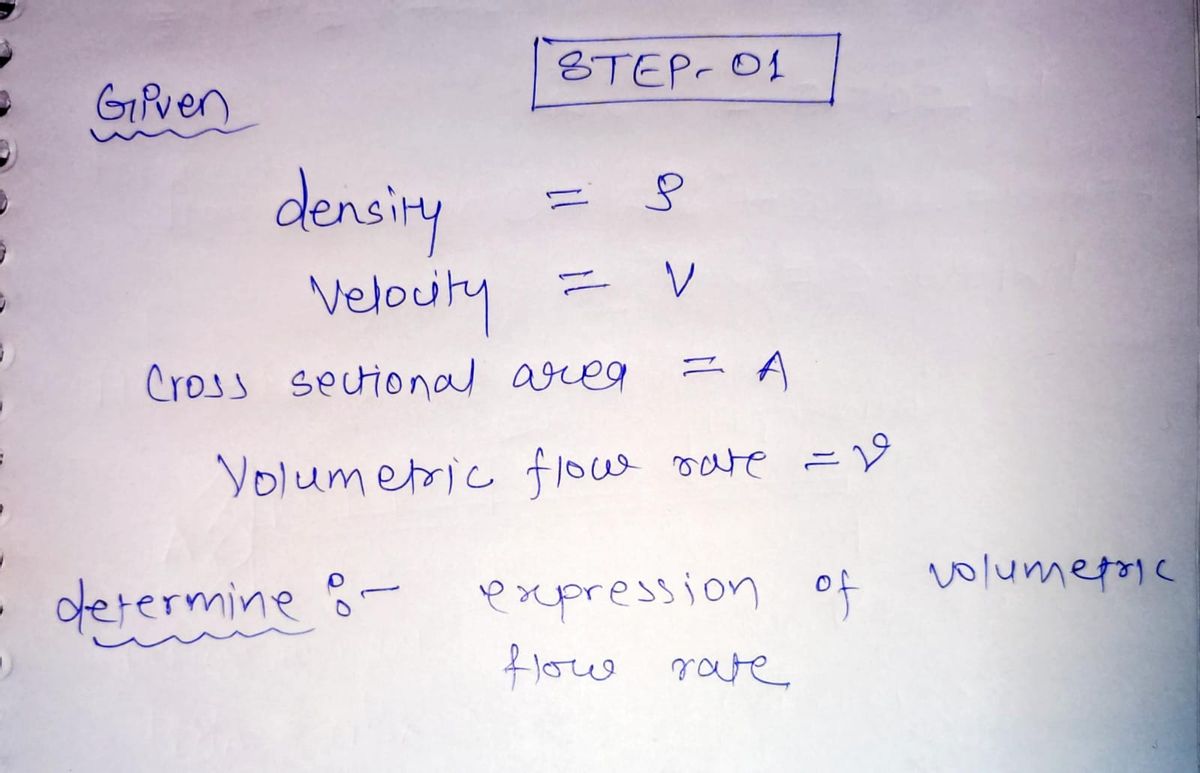 STEP-01
Given
density = ρ
Velocity = V
Cross sectional area = A
Volumetric flow rate = v
determine :- expression of volumetric
flow rate